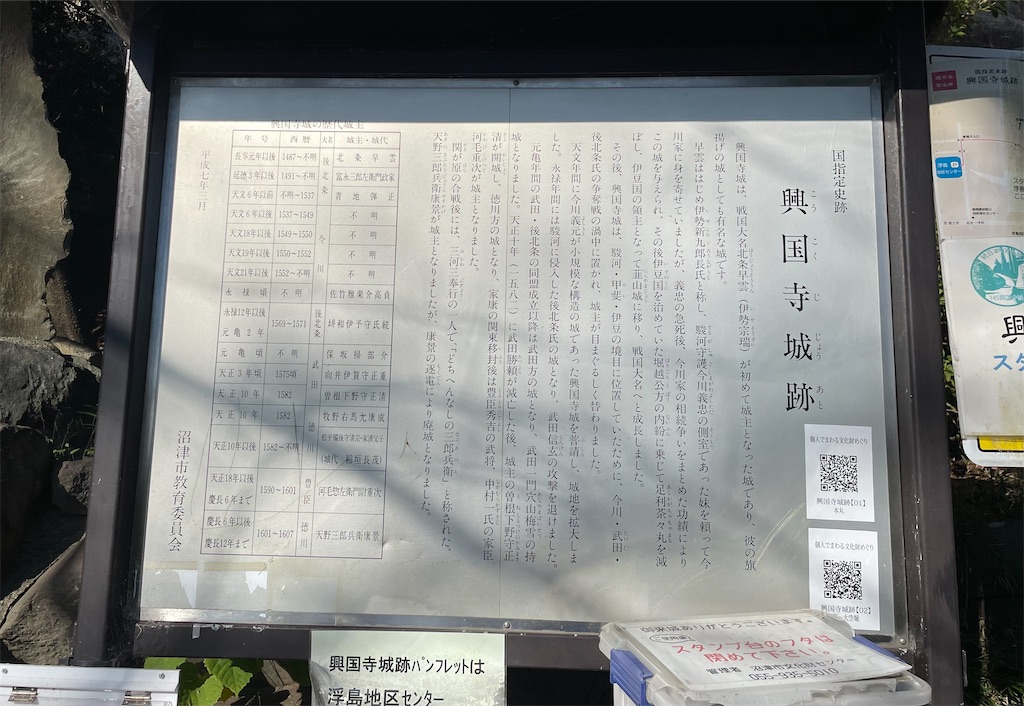 国指定史跡
興国寺城跡
こうこくじじょうあと
興国寺城は、戦国大名北条早雲（伊勢宗瑞）が初めて城主となった城であり、彼の旗
揚げの城としても有名な城です。
早雲ははじめ伊勢新九郎長氏と称し、駿河守護今川義忠の側室であった妹を頼って今
川家に身を寄せていましたが、義忠の急死後、今川家の相続争いをまとめた功績により
この城を与えられ、その後伊豆国を治めていた堀越公方の内紛に乗じて足利茶々丸を滅
ぼし、伊豆国の領主となって韮山城に移り、戦国大名へと成長しました。
その後、興国寺城は、駿河・甲斐・伊豆の境目に位置していたために、今川・武田・
後北条氏の争奪戦の渦中に置かれ、城主が目まぐるしく替わりました。
天文年間に今川義元が小規模な構造の城であった興国寺城を普請し、城地を拡大しま
した。永禄年間には駿河に侵入した後北条氏の城となり、武田信玄の攻撃を退けました。
元亀年間の武田・後北条の同盟成立以降は武田方の城となり、武田一門穴山梅雪の持
城となりました。天正十年（一五八二）に武田勝頼が滅亡した後、城主の曽根下野守正
清が開城し、徳川方の城となり、家康の関東移封後は豊臣秀吉の武将、中村一氏の家臣
河毛重次が城主となりました。
関が原の合戦後には、三河三奉行の一人で、「どちへんなしの三郎兵衛」と称された、
天野三郎兵衛康景が城主となりましたが、康景の逐電により廃城となりました。
興国寺城の歴代城主
年号 西暦 大名 城主・城代
長享元年以後 1487～不明 後北条 北条早雲
延徳3年以後 1491～不明 富永三郎左衛門政家
天文6年以前 不明～1537 青地弾正
天文6年以後 1537～1549 今川 不明
天文18年以後 1549～1550 不明
天文19年以後 1550～1552 不明
天文21年以後 1552～不明 不明
永禄頃 不明 佐竹雅楽介高貞
永禄12年以後 元亀2年 1569～1571 後北条 垪和伊予守氏続
元亀頃 不明 武田 保坂掃部介
天正3年頃 1575頃 向井伊賀守正重
天正10年 1582 曽根下野守正清
天正10年 1582 徳川 牧野右馬允康成
天正10年以後 1582～不明 松平備後守清宗・家清父子
（城代 稲垣長茂）
天正18年以後 慶長6年まで 1590～1601 豊臣 河毛惣左衛門尉重次
慶長6年以後 慶長12年まで 1601～1607 徳川 天野三郎兵衛康景
平成七年三月
沼津市教育委員会
個人でまわる文化財めぐり
興国寺城跡【01】
本丸
個人でまわる文化財めぐり
興国寺城跡【02】
大空堀
国指定史跡
興国寺城跡
興国寺城跡パンフレットは
浮島地区センター
御来場ありがとうございます。
ご使用後
スタンプ台のフタは
閉めて下さい。
管理者 沼津市文化財センター
055-935-5010
興
スタ